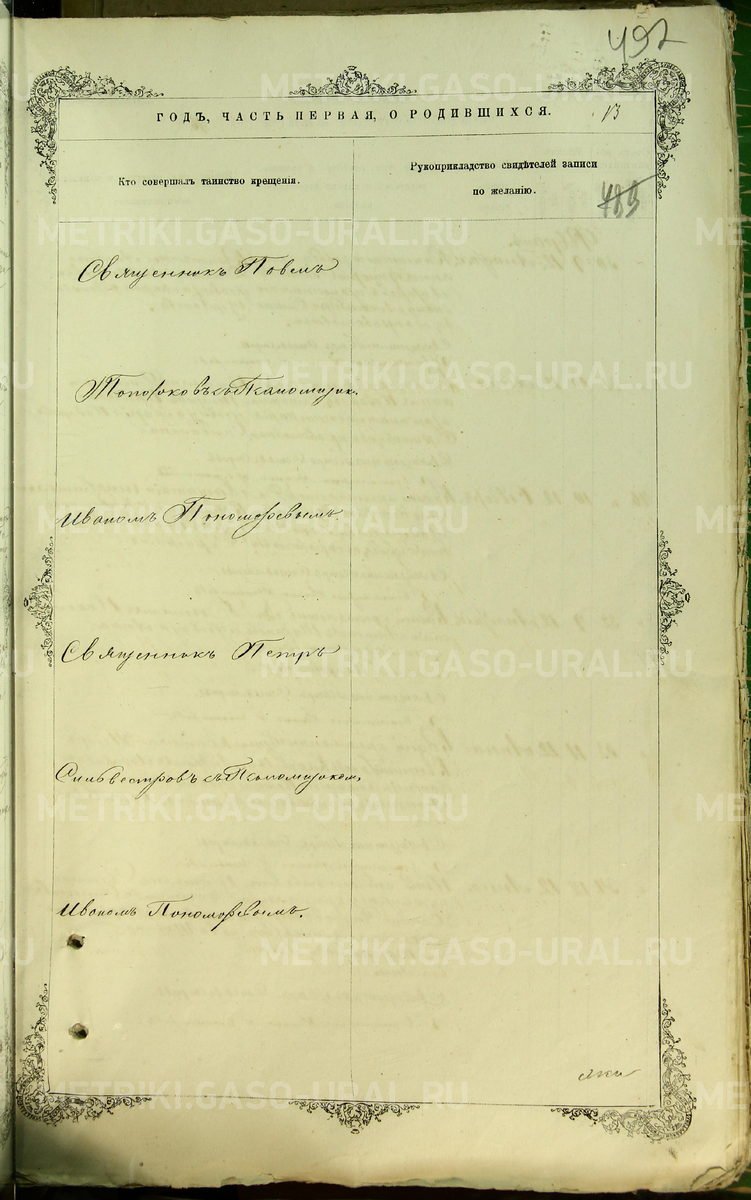 492
ГОДЪ, ЧАСТЬ ПЕРВАЯ, О РОДИВШИХСЯ.
13
Кто совершалъ таинство крещенія.
Рукоприкладство свидѣтелей записи
по желанію.
489
Священникъ Павелъ
Топорковъ съ Псаломщик.
Иваномъ Пономаревымъ.
Священникъ Петръ
Сильвестровъ съ Псаломщиком,
Иваномъ Пономаревымъ.
METRIKI.GASO-URAL.RU